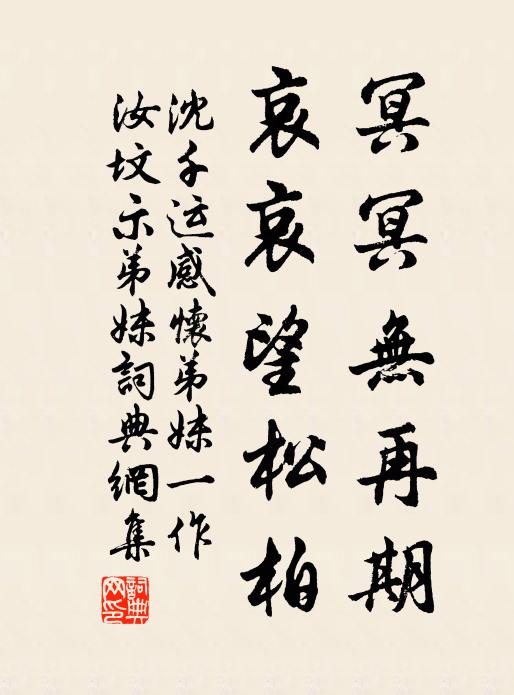 冥冥無再期
哀哀望松柏
沈千运感懷弟妹一作
汝坟示弟妹詞典網集
詞典网印